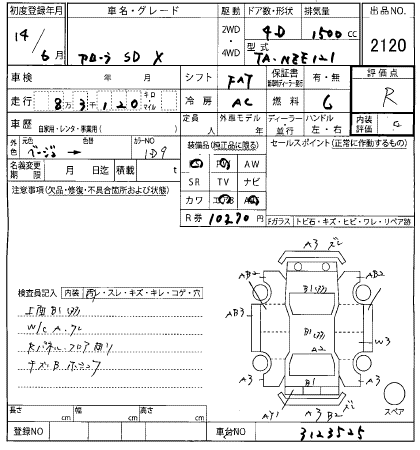 初度登録年月 車名・グレード 駆動 ドア数・形状 排気量 出品NO.
14/6月 カローラ SD X 2WD・4WD 4D 1500cc 2120
型式 TA-NZE121
車検 年 月 シフト FAT 保証書 有・無 評価点
走行 8万3千120 キロ マイル 冷房 AC 燃料 G R
車歴 自家用・レンタ・事業用( ) 定員 人 外車モデル 年 ディーラー・並行 ハンドル 左・右 内装評価 C
外色 元色 ベージュ → 色替 カラーNO 1D9 装備品(純正品に限る) セールスポイント(正常に作動するもの)
名義変更期限 月 日迄 積載 t AW
SR TV ナビ
注意事項(欠品・修復・不具合箇所および状態) カワ
R券 10270円 Fガラス トビ石・キズ・ヒビ・ワレ・リペア跡
A3
AB2 B1 AB2
検査員記入 内装 スレ・キズ・キレ・コゲ・穴
B1
W/C A.
AB3 B1 W3
A2
A3 B1 A3
AY1 A3 B2
スペア
長さ cm 幅 cm 高さ cm
登録NO 車台NO 3123525